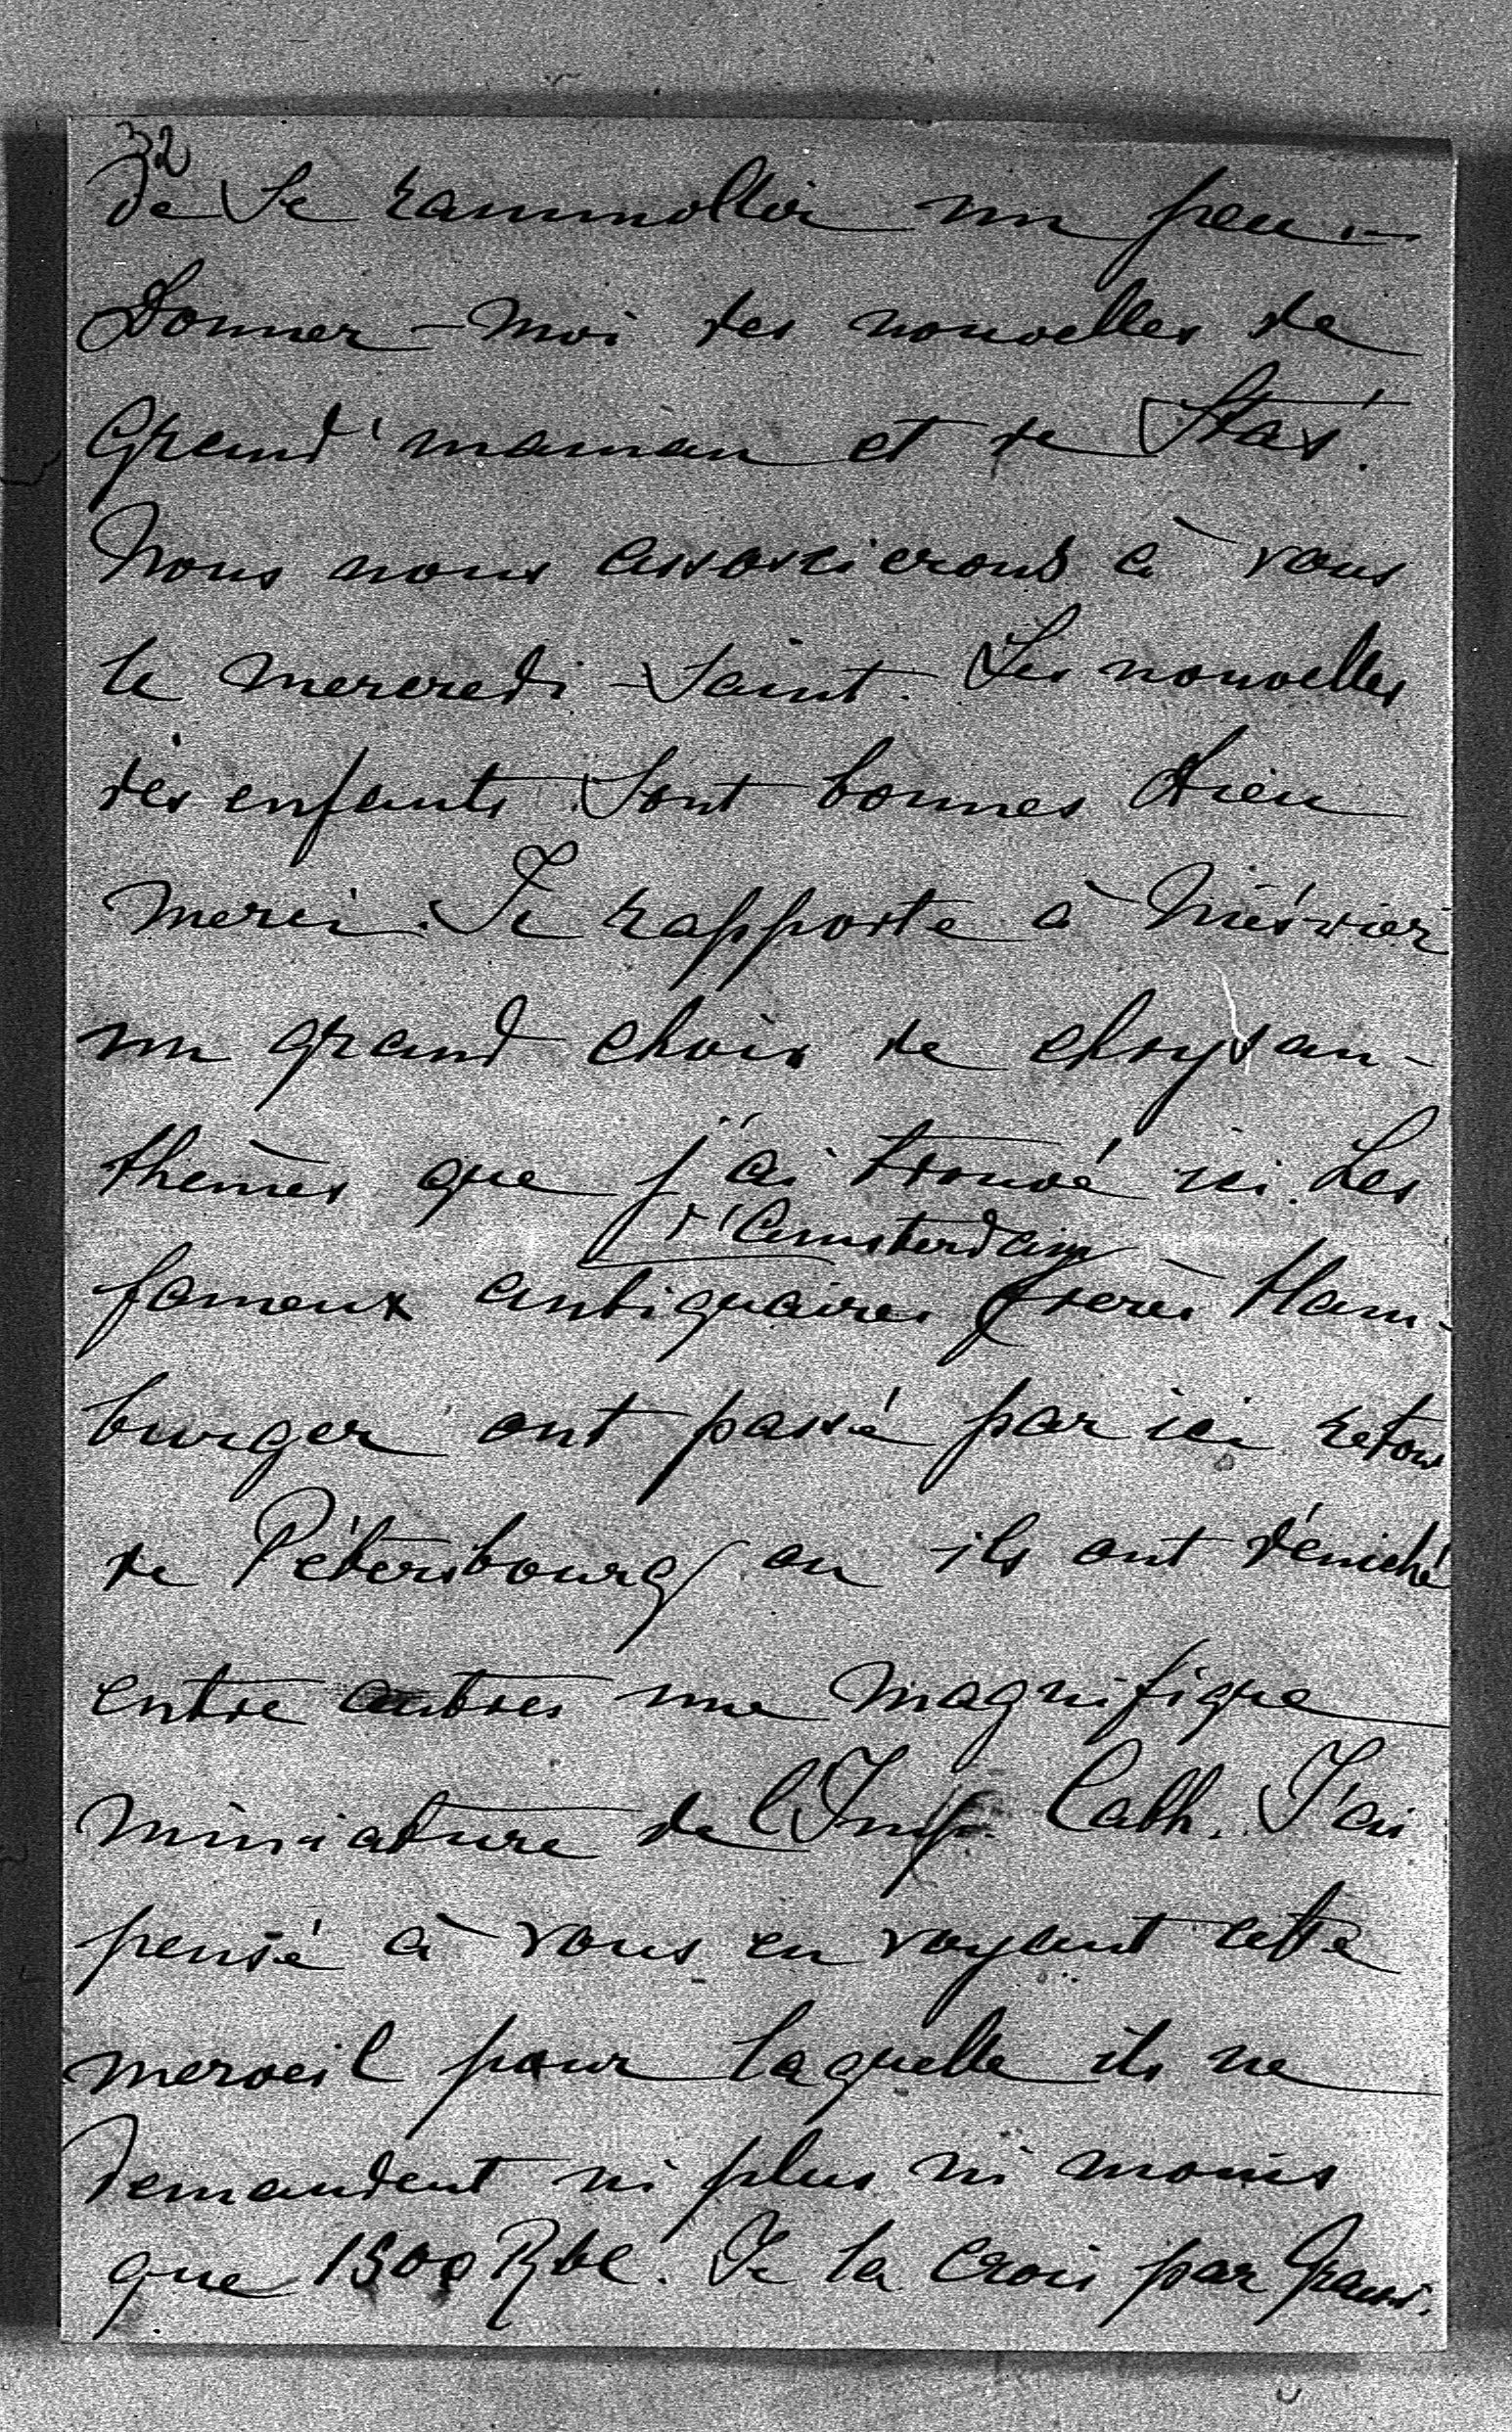 32
de se rammollir un peu.—
Donner-moi des nouvelles de
Grand'maman et de Stas.
Nous nous associerons à vous
le mercredi-saint. Les nouvelles
des enfants sont bonnes Dieu
merci. Je rapporte à Nieśwież
un grand choix de chrysan-
thèmes que j'ai trouvé ici. Les
d'Amsterdam
fameux antiquaires frères Ham-
burger ont passé par ici retour
de Pétersbourg ou ils ont déniché
entre autres une magnifique
miniature de l'Imp. Cath. J'ai
pensé à vous en voyant cette
merveil pour laquelle ils ne
demandent ni plus ni moins
que 1500 Rbl. Je la crois par